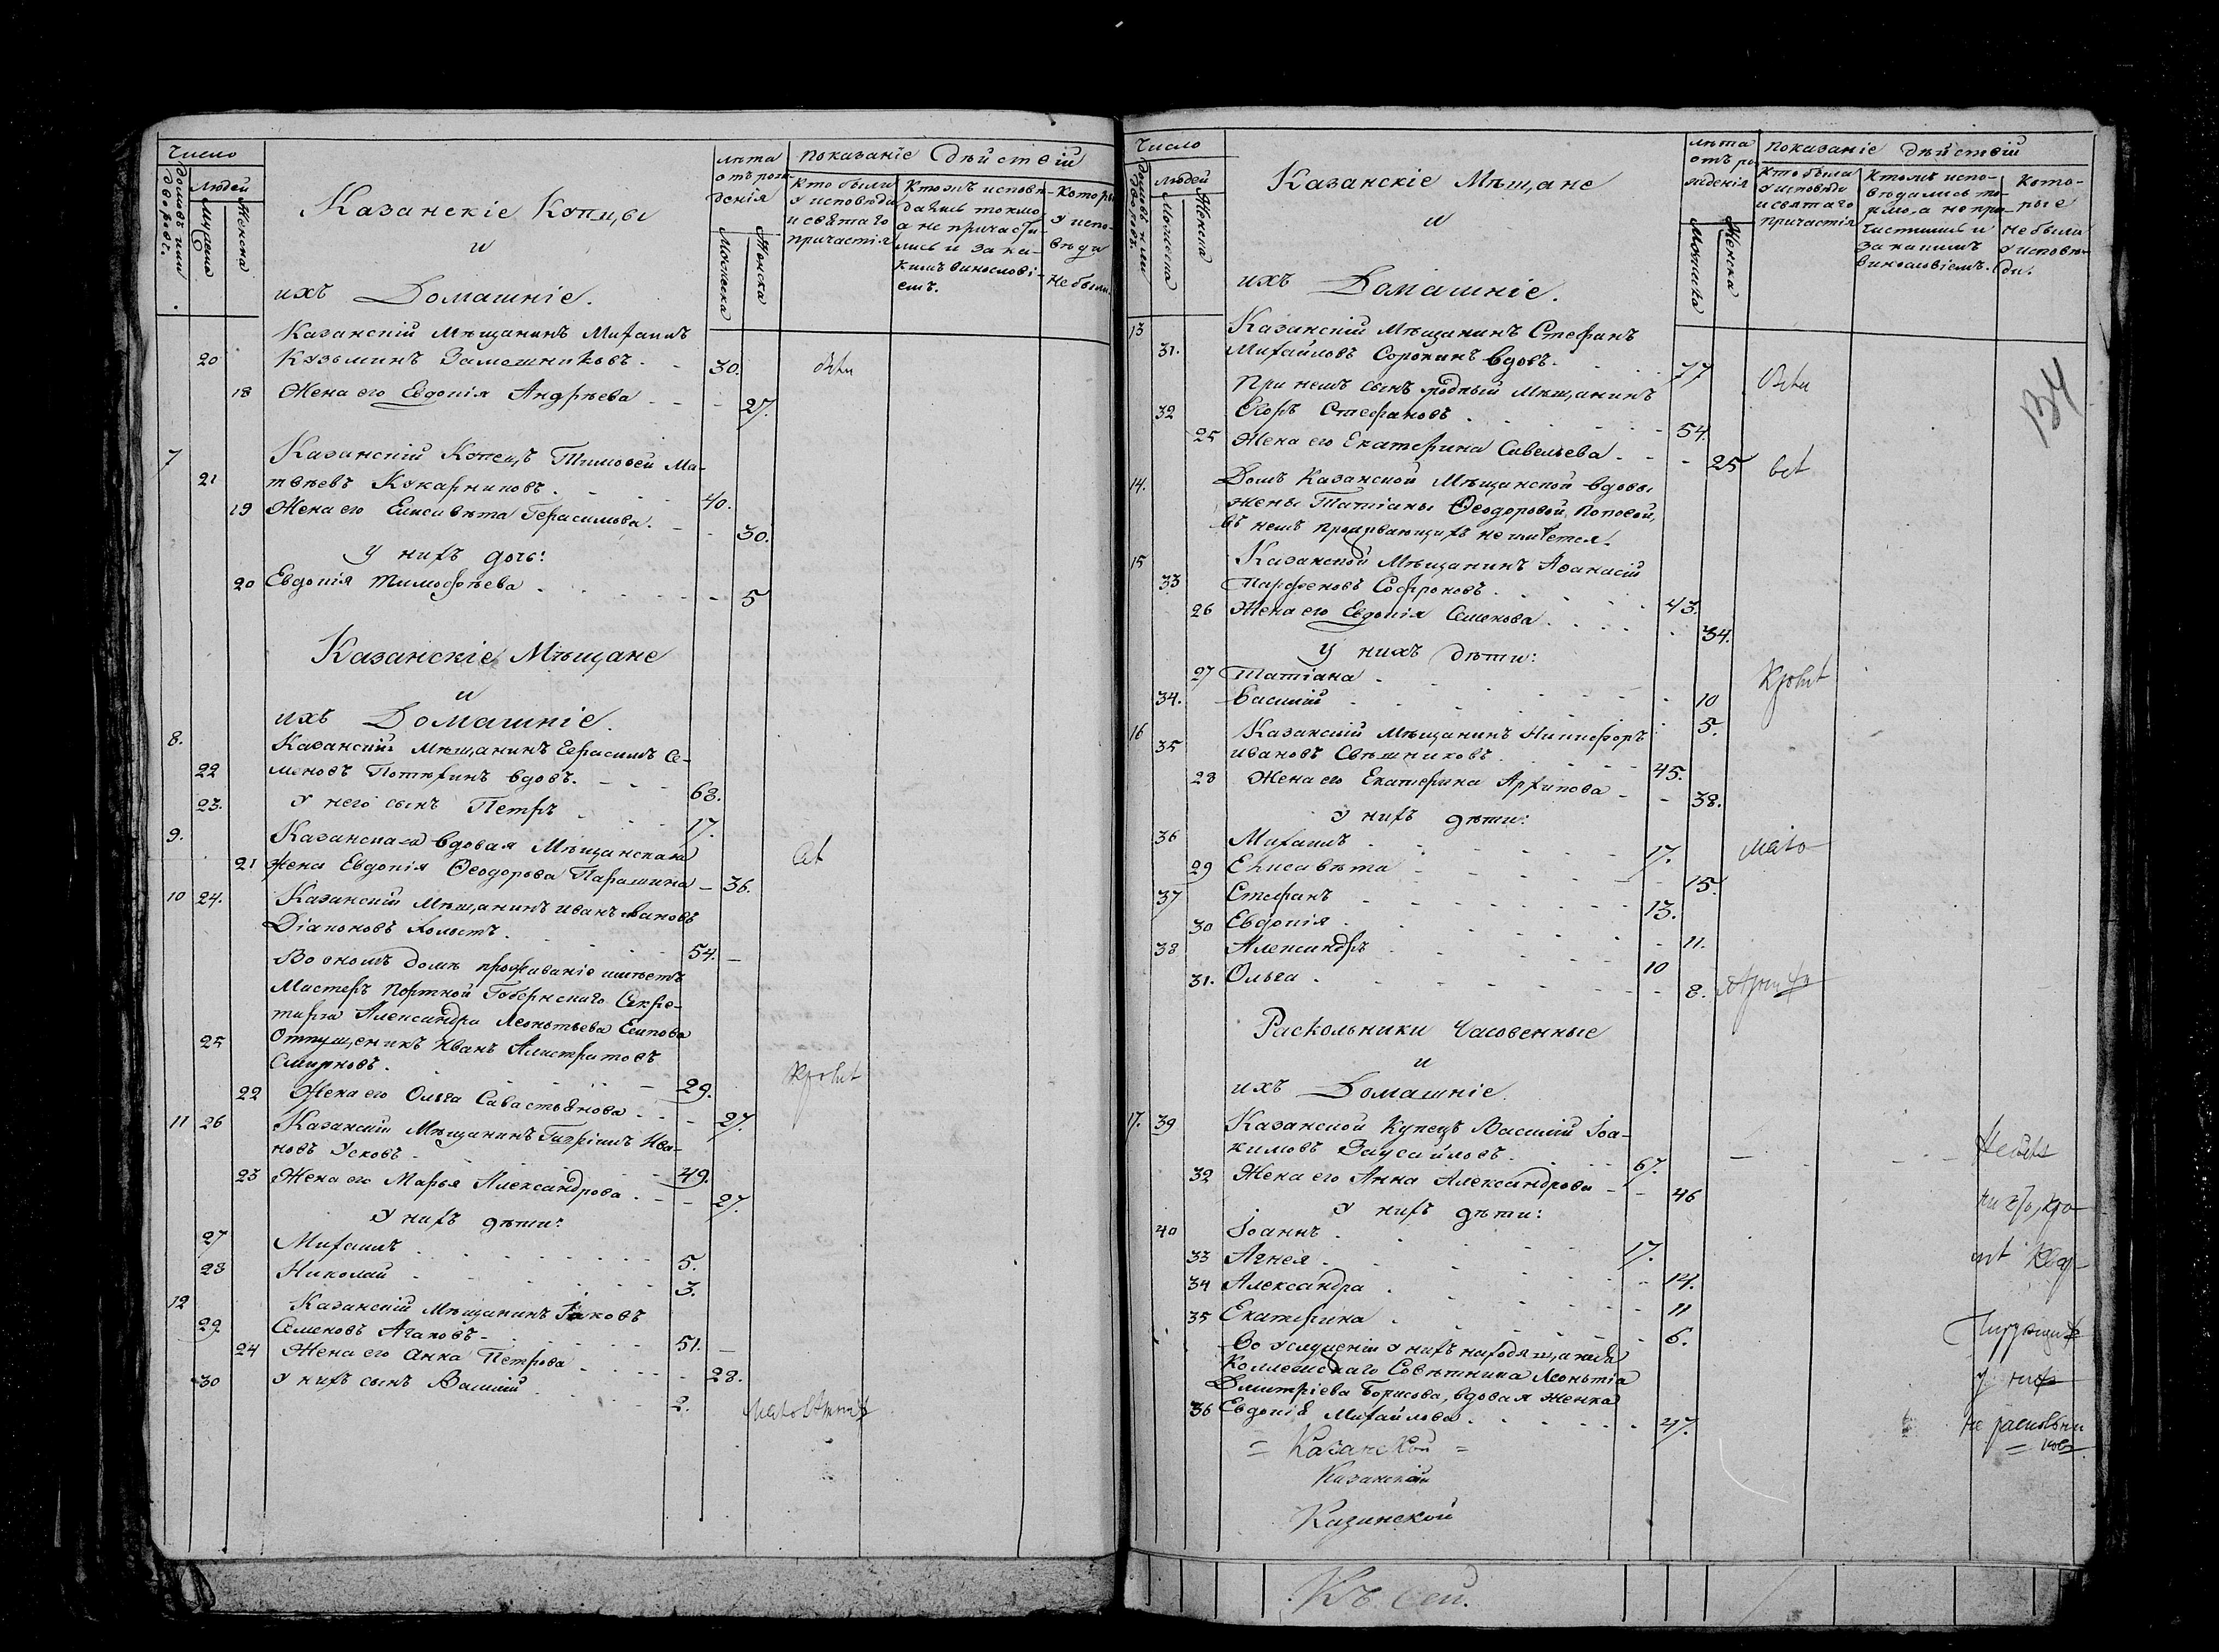 Число
Домовъ или дворовъ.
Людей
Мужеска
Женска
Казанскіе Купцы
и
ихъ Домашніе.
лѣта
отъ рож-
денія
Мужеска
Женска
Показаніе дѣйствій
Кто были
у исповѣди
и святаго
причастія
Ктожъ исповѣ-
дались токмо
а не причасти-
лись и за ка-
кимъ винословіе-
емъ.
Которые
у испо-
вѣди
не были.
Казанскій Мѣщанинъ Михаилъ
20 Кузьминъ Замошниковъ. 30.
18 Жена его Евдокія Андрѣева 27.
7 Казанскій Купецъ Тимоѳей Ма-
21 твѣевъ Кукарниковъ. 40.
19 Жена его Елисавѣта Герасимова. 30.
У нихъ дочь:
20 Евдокія Тимофѣева 5
Казанскіе Мѣщане
и
ихъ Домашніе.
8. Казанскій Мѣщанинъ Герасимъ Се-
22 меновъ Потѣхинъ вдовъ. 68.
23. У него сынъ Петръ 17.
9. Казанская вдовая Мѣщанская
21 жена Евдокія Ѳеодорова Парашина 36.
10 24. Казанскій Мѣщанинъ Иванъ Ивановъ
Діаконовъ холостъ. 54.
Во ономъ домѣ проживаніе имѣетъ
Мастеръ Портной Губернскаго Секре-
таря Александра Леонтьева Есипова
25 Отпущеникъ Иванъ Алистратовъ
Смирновъ. 29.
22 Жена его Ольга Савастьянова 27.
11 26 Казанскій Мѣщанинъ Гавріилъ Ива-
новъ Усковъ 49.
23 Жена его Марья Александрова. 27.
У нихъ дѣти:
27 Михаилъ 5.
28 Николай 3.
12 Казанскій Мѣщанинъ Іаковъ
29 Семеновъ Агаповъ 51.
24 Жена его Анна Петрова 28.
30 У нихъ сынъ Василій 2.
Число
Домовъ или дворовъ.
Людей
Мужеска
Женска
Казанскіе Мѣщане
и
ихъ Домашніе.
лѣта
отъ ро-
жденія
Мужеска
Женска
Показаніе дѣйствій
Кто были
у исповѣди
и святаго
причастія
Ктожъ испо-
вѣдались то-
кмо, а не при-
частились и
за какимъ
винословіемъ.
Кото-
рые
не были
у исповѣ-
ди.
134
13 Казанскій Мѣщанинъ Стефанъ
31. Михайловъ Сорокинъ вдовъ. 77
При немъ сынъ родный Мѣщанинъ
32 Егоръ Стефановъ 54.
25 Жена его Екатерина Савельева 25
14. Домъ Казанской Мѣщанской вдовы
жены Татіаны Ѳеодоровой Поповой,
въ немъ проживающихъ не имѣется.
15 Казанской Мѣщанинъ Аѳанасій
33 Парфеновъ Софроновъ 43.
26 Жена его Евдокія Семенова 34.
У нихъ дѣти:
27 Татіана 10
34. Василій 5.
16 Казанскій Мѣщанинъ Никифоръ
35 Ивановъ Свѣшниковъ 45.
28 Жена его Екатерина Архипова 38.
У нихъ дѣти:
36 Михаилъ 17.
29 Елисавѣта 15.
37 Стефанъ 13.
30 Евдокія 11.
38 Александръ 10
31. Ольга 8.
Раскольники Часовенные
и
ихъ Домашніе.
17. 39 Казанской Купецъ Василій Іоа-
кимовъ Заусайловъ 67.
32 Жена его Анна Александрова 46
У нихъ дѣти:
40 Іоаннъ 17.
33 Агнея 14.
34 Александра 11
35 Екатерина 6.
Во услуженіи у нихъ находящаяся
Коллежскаго Совѣтника Леонтія
Дмитріева Борисова, вдовая женка
36 Евдокія Михайлова 47.
у нихъ
не раскольни
= ковъ
= Казанской =
Казанской
Казанской
Къ сей.